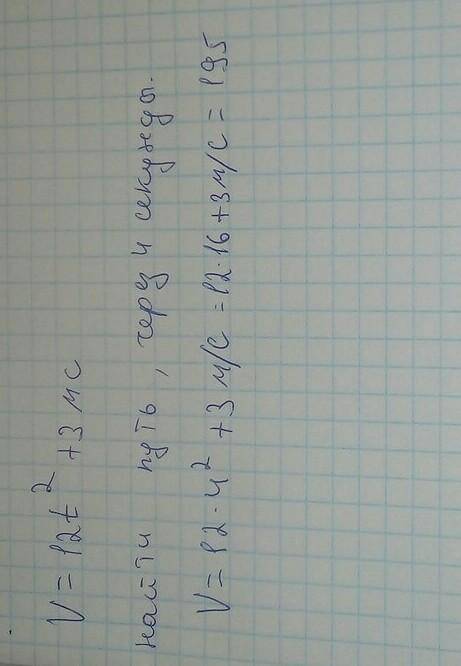 V = 12t² + 3 мс
найти путь, через 4 секунды.
V = 12·4² + 3 м/с = 12·16 + 3 м/с = 195